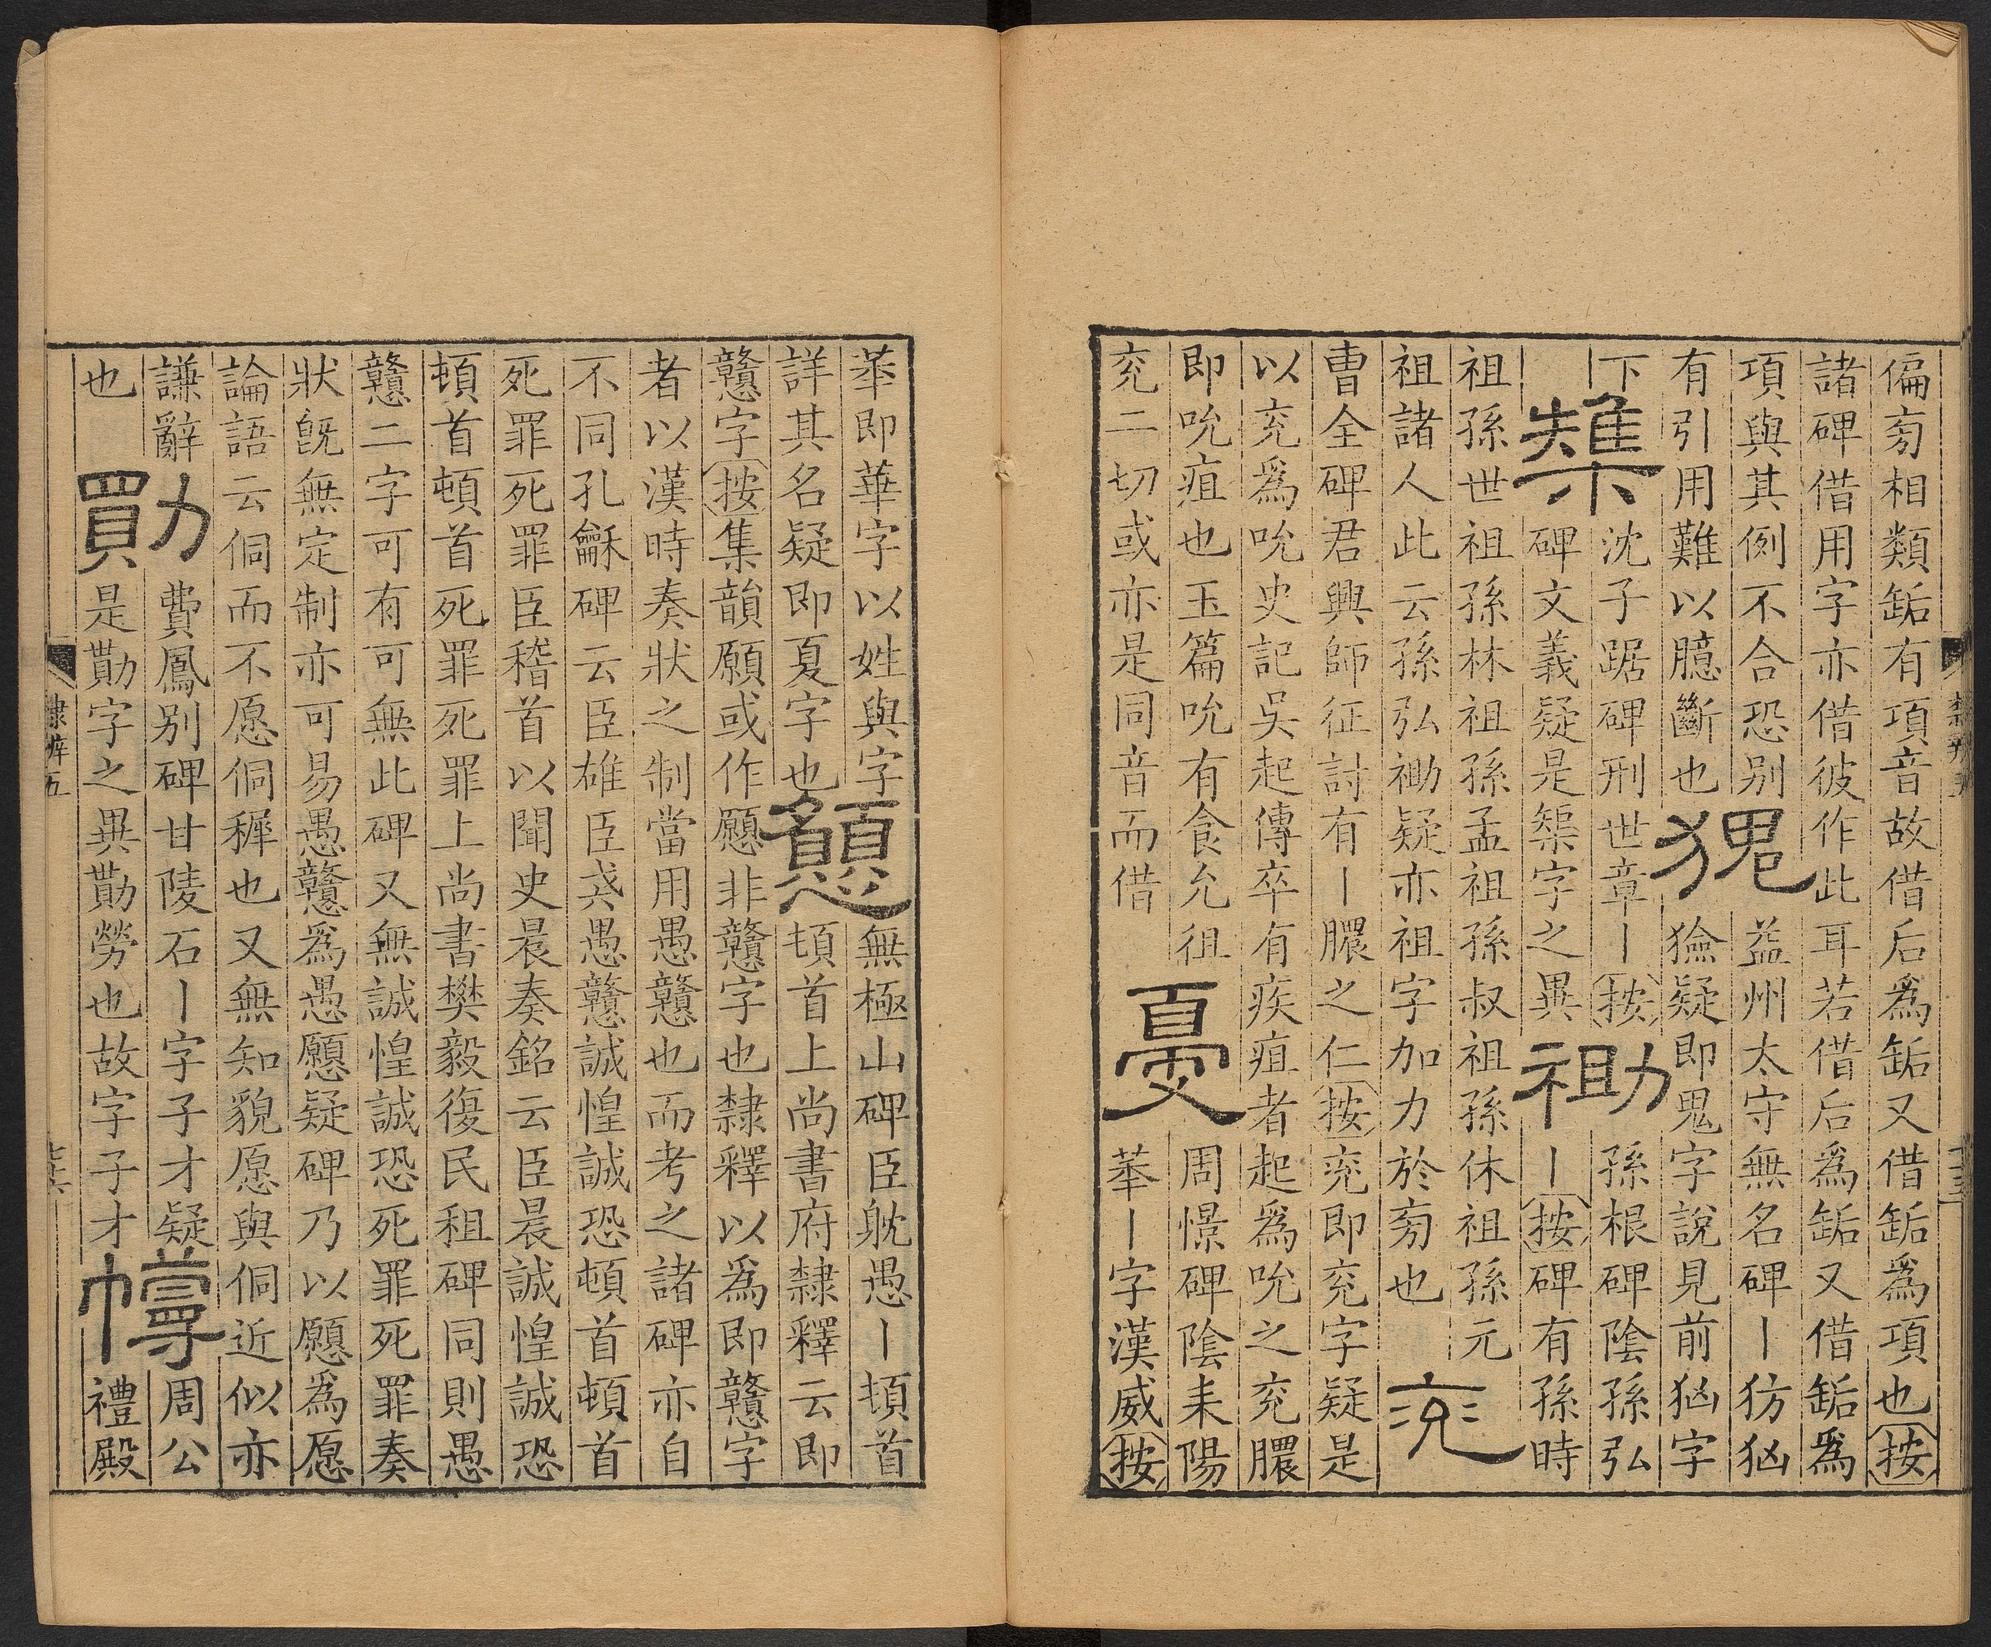 偏㫄相類缿有項音故借后爲缿又借缿爲項也按
諸碑借用字亦借彼作此耳若借后爲缿又借缿爲
項與其例不合恐别
有引用難以臆斷也
益州太守無名碑丨彷㐫
獫疑即鬼字說見前㐫字
下
沈子踞碑刑世章丨按
碑文義疑是榘字之異
孫根碑陰孫弘
丨按碑有孫時
祖孫世祖孫林祖孫孟祖孫叔祖孫休祖孫元
祖諸人此云孫弘疑亦祖字加力於㫄也
兖
曹全碑君興師征討有丨膿之仁按兖即兖字疑是
以兖爲吮史記吳起傳卒有疾疽者起爲吮之兖膿
即吮疽也玉篇吮有食允徂
兖二切或亦是同音而借
周憬碑陰耒陽
華丨字漢威按
華即華字以姓與字
詳其名疑即夏字也
無極山碑臣躭愚丨頓首
頓首上尚書府隸釋云即
戇字按集韻願或作願非戇字也隸釋以爲即戇字
者以漢時奏狀之制當用愚戇也而考之諸碑亦自
不同孔龢碑云臣雄臣戒愚戇誠惶誠恐頓首頓首
死罪死罪臣稽首以聞史晨奏銘云臣晨誠惶誠恐
頓首頓首死罪死罪上尚書樊毅復民租碑同則愚
戇二字可有可無此碑又無誠惶誠恐死罪死罪奏
狀旣無定制亦可易愚戇爲愚願疑碑乃以願爲愿
論語云侗而不愿侗穉也又無知貌愿與侗近似亦
謙辭
也
費鳳别碑甘陵石丨字子才疑
是勩字之異勩勞也故字子才
周公
禮殿
隸辨五